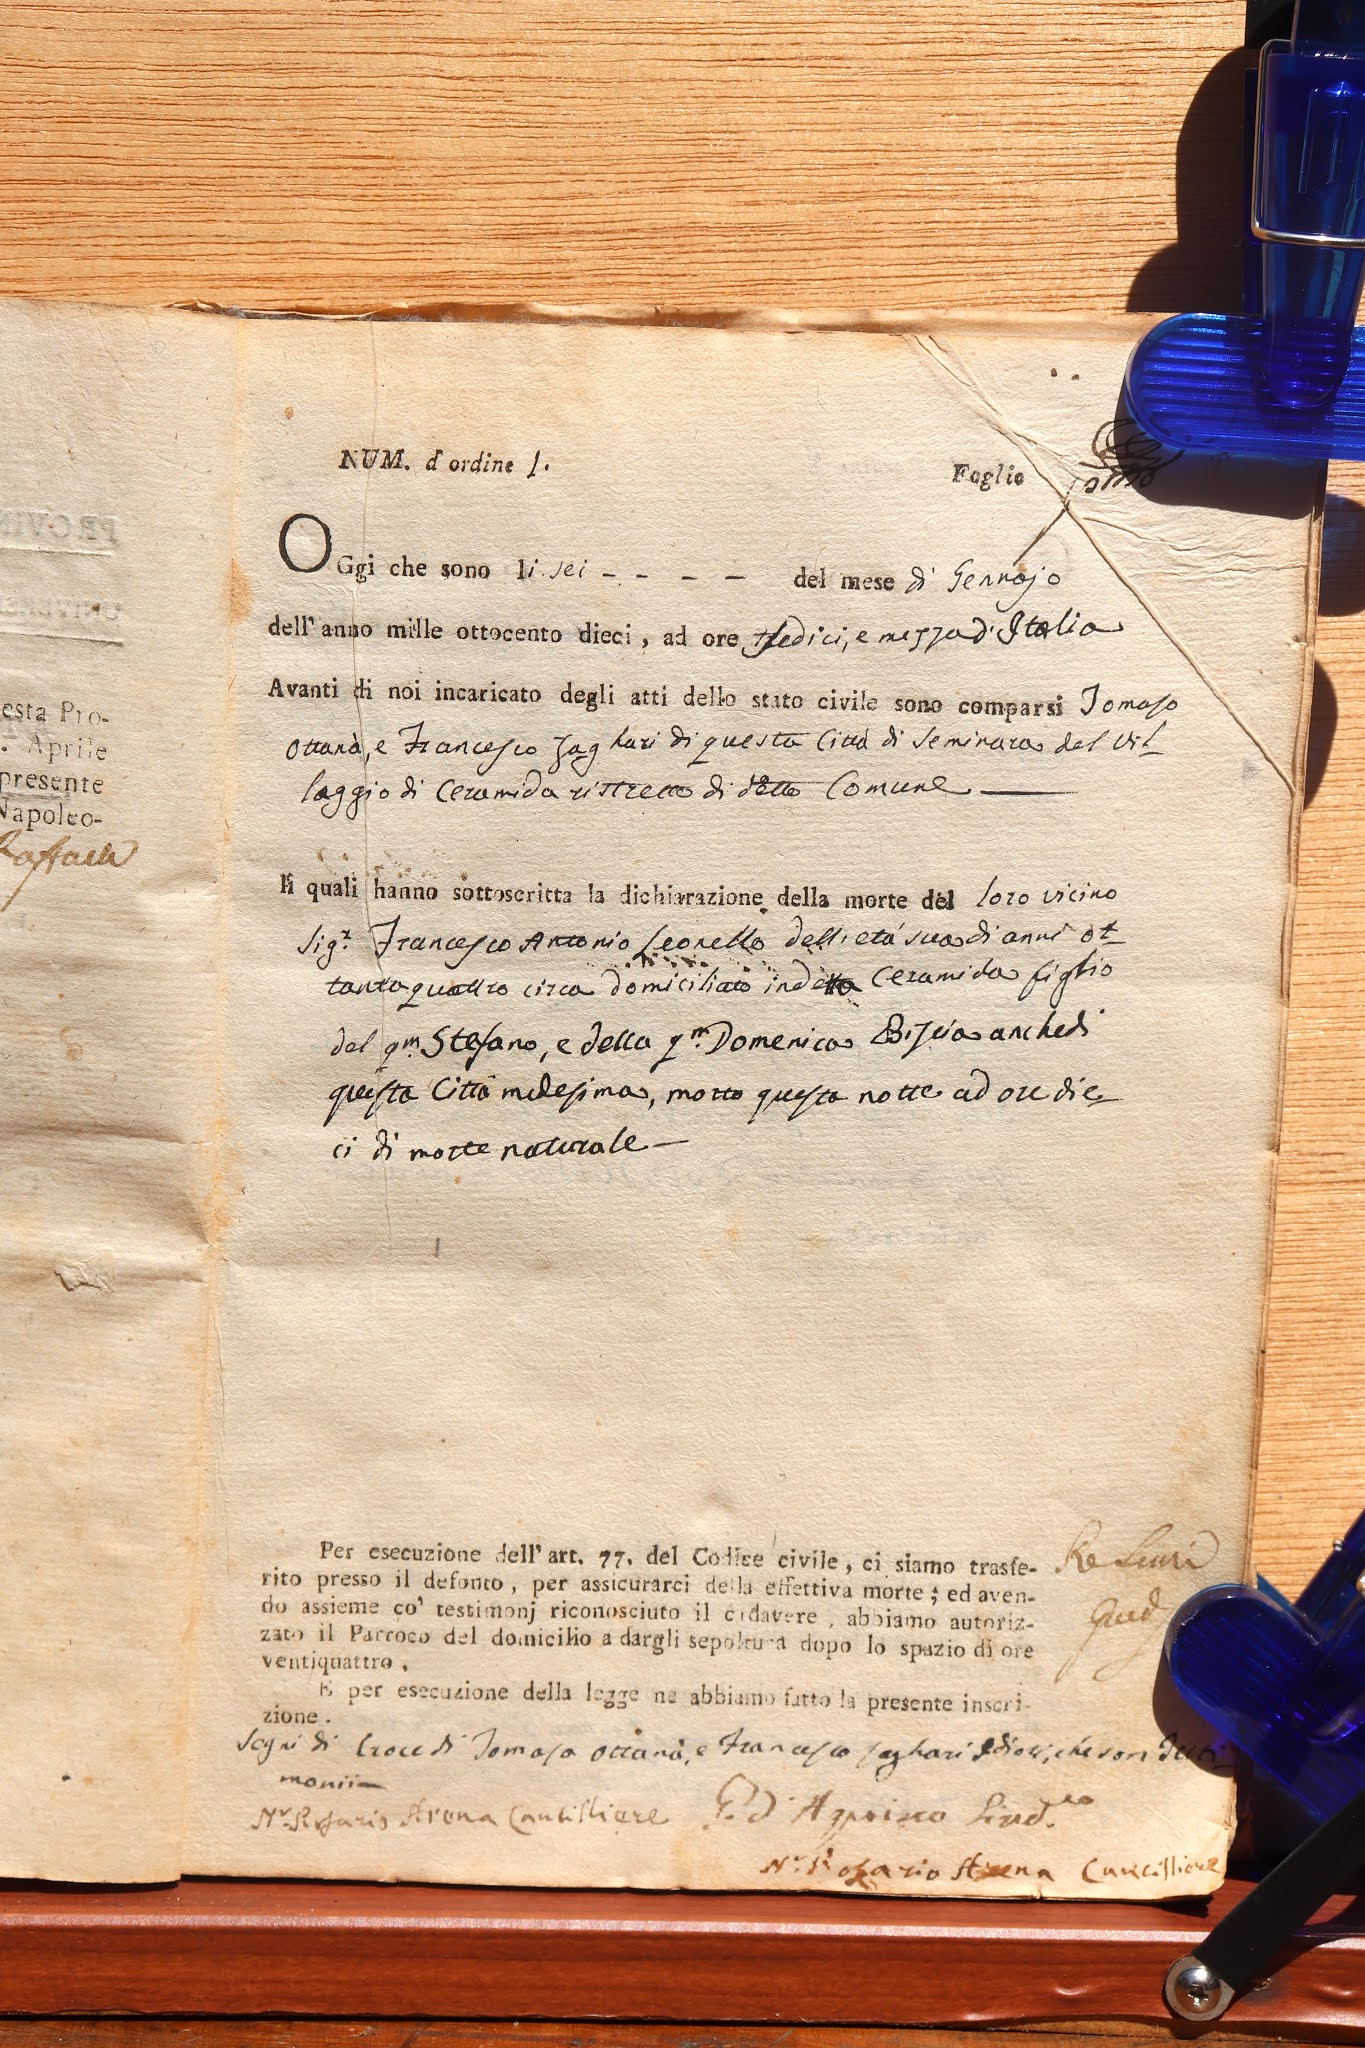 NUM. d'ordine 1.
Foglio primo
OGgi che sono li sei - - - - del mese di Gennajo
dell'anno mille ottocento dieci, ad ore sedici, e mezza d'Italia
Avanti di noi incaricato degli atti dello stato civile sono comparsi Tomaso
Ottanà, e Francesco Zaghari di questa Città di Seminara del Vil
laggio di Ceramida ristretto di detto Comune
Ii quali hanno sottoscritta la dichiarazione della morte del loro vicino
Sig.r Francesco Antonio Leonello dell'età sua di anni ot
tantaquattro circa domiciliato in detta Ceramida figlio
del qm. Stefano, e della qm. Domenica anche di
questa Città medesima, morto questa notte ad ore die
ci di morte naturale
Per esecuzione dell'art. 77. del Codice civile, ci siamo trasfe-
rito presso il defonto, per assicurarci della effettiva morte; ed aven-
do assieme co' testimonj riconosciuto il cadavere, abbiamo autoriz-
zato il Parroco del domicilio a dargli sepoltura dopo lo spazio di ore
ventiquattro.
E per esecuzione della legge ne abbiamo fatto la presente inscri-
zione.
Segni di Croce di Tomaso Ottanà, e Francesco Zaghari che son Testi
monii
N.r Rosario Arena Cancilliere
N.r Rosario Arena Cancilliere
esta Pro-
. Aprile
presente
Napoleo-
Raffaele